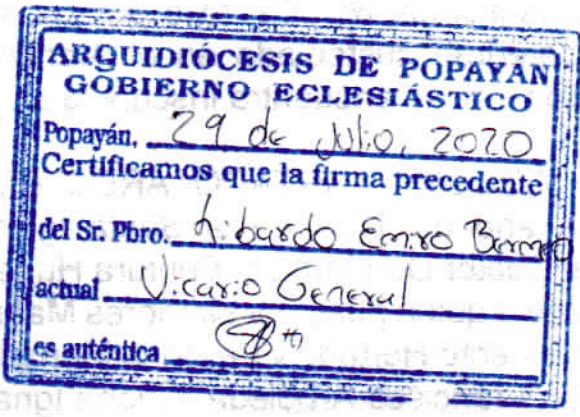 ARQUIDIÓCESIS DE POPAYÁN
GOBIERNO ECLESIÁSTICO
Popayán, 29 de Julio, 2020
Certificamos que la firma precedente
del Sr. Pbro. Libardo Emiro Bermeo
actual Vicario General
es auténtica